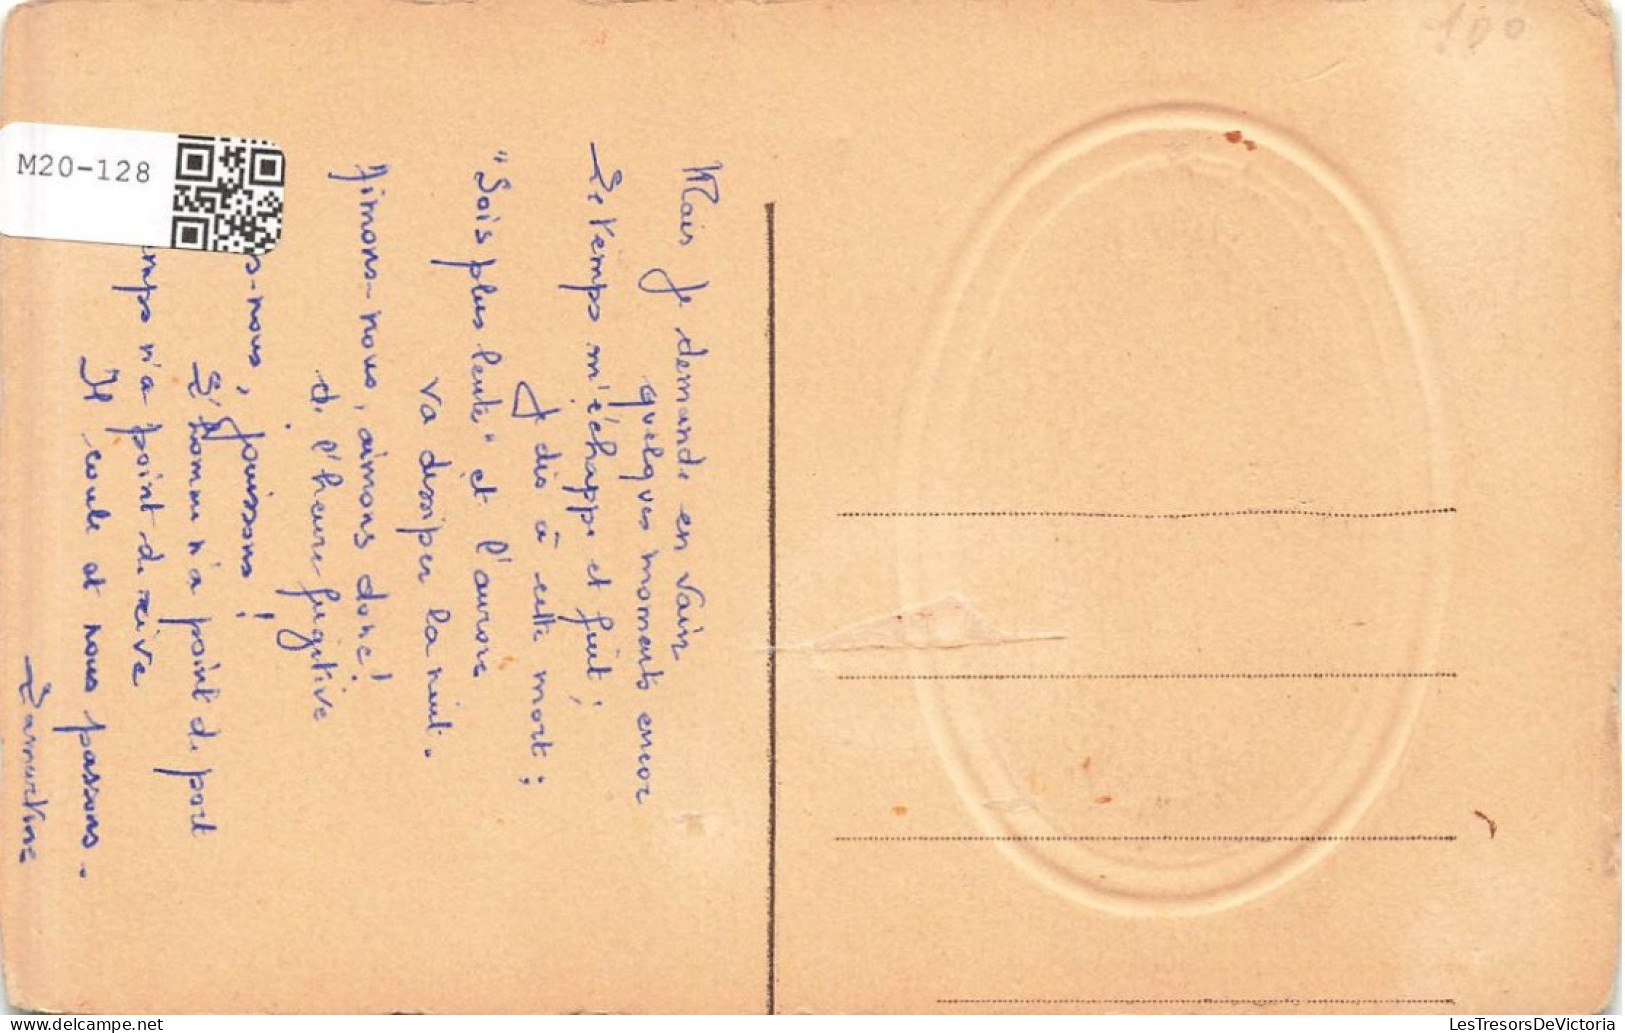 Mais je demande en vain
quelques moments encor
Le temps m'échappe et fuit;
Je dis à cette mort;
"Sois plus lente" et l'aurore
va dissiper la nuit.
Aimons-nous, aimons donc!
de l'heure fugitive
s-nous, jouissons!
L'homme n'a point de port
emps n'a point de rive
Il coule et nous passons.
Lamartine
M20-128
LesTresorsDeVictoria